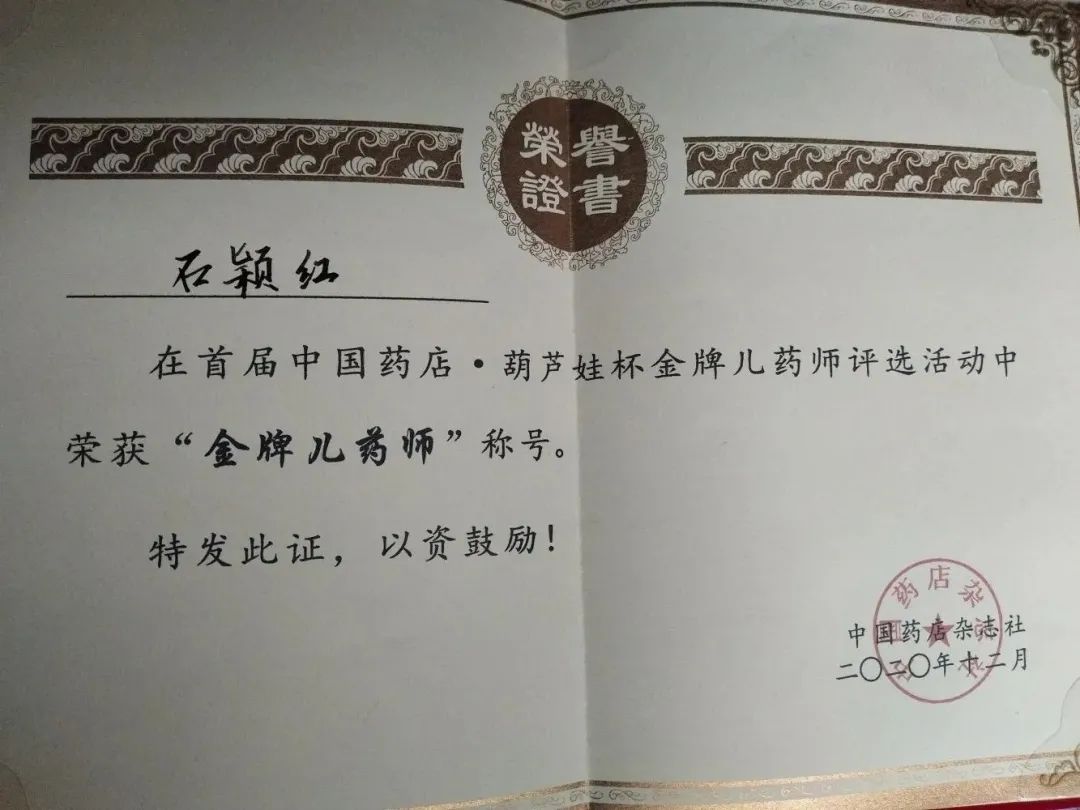 榮譽
證書
石颖红
在首届中国药店·葫芦娃杯金牌儿药师评选活动中
荣获“金牌儿药师”称号。
特发此证，以资鼓励！
中国药店杂志社
二〇二〇年十二月
中国药店杂志社